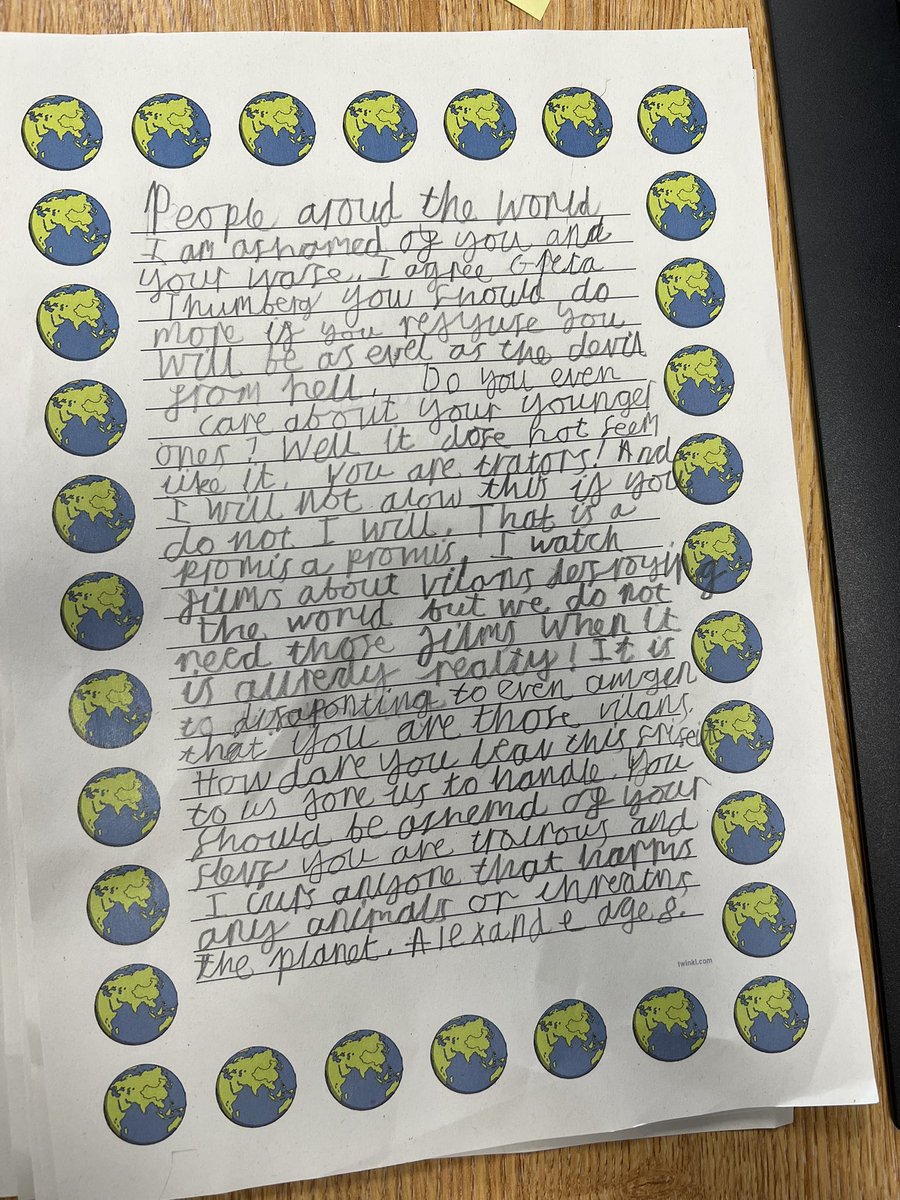 People aroud the world
I am ashamed of you and
your waste. I agree Greta
Thumberg you should do
more if you refyuse you
will be as evel as the devil
from hell. Do you even
care about your younger
ones? Well it dose not seem
like it. You are trators! And
I will not alow this if you
do not I will. That is a
promis a promis. I watch
films about vilans destroying
the world but we do not
need those films when it
is allredy realty! It is
to disaponting to even amgen
that you are those vilans.
How dare you leav this
to us fore us to handle. You
should be ashemd of your
you are trairous and
I curs anyone that harms
any animals or threatns
the planet. Alexande age 8.
twinkl.com